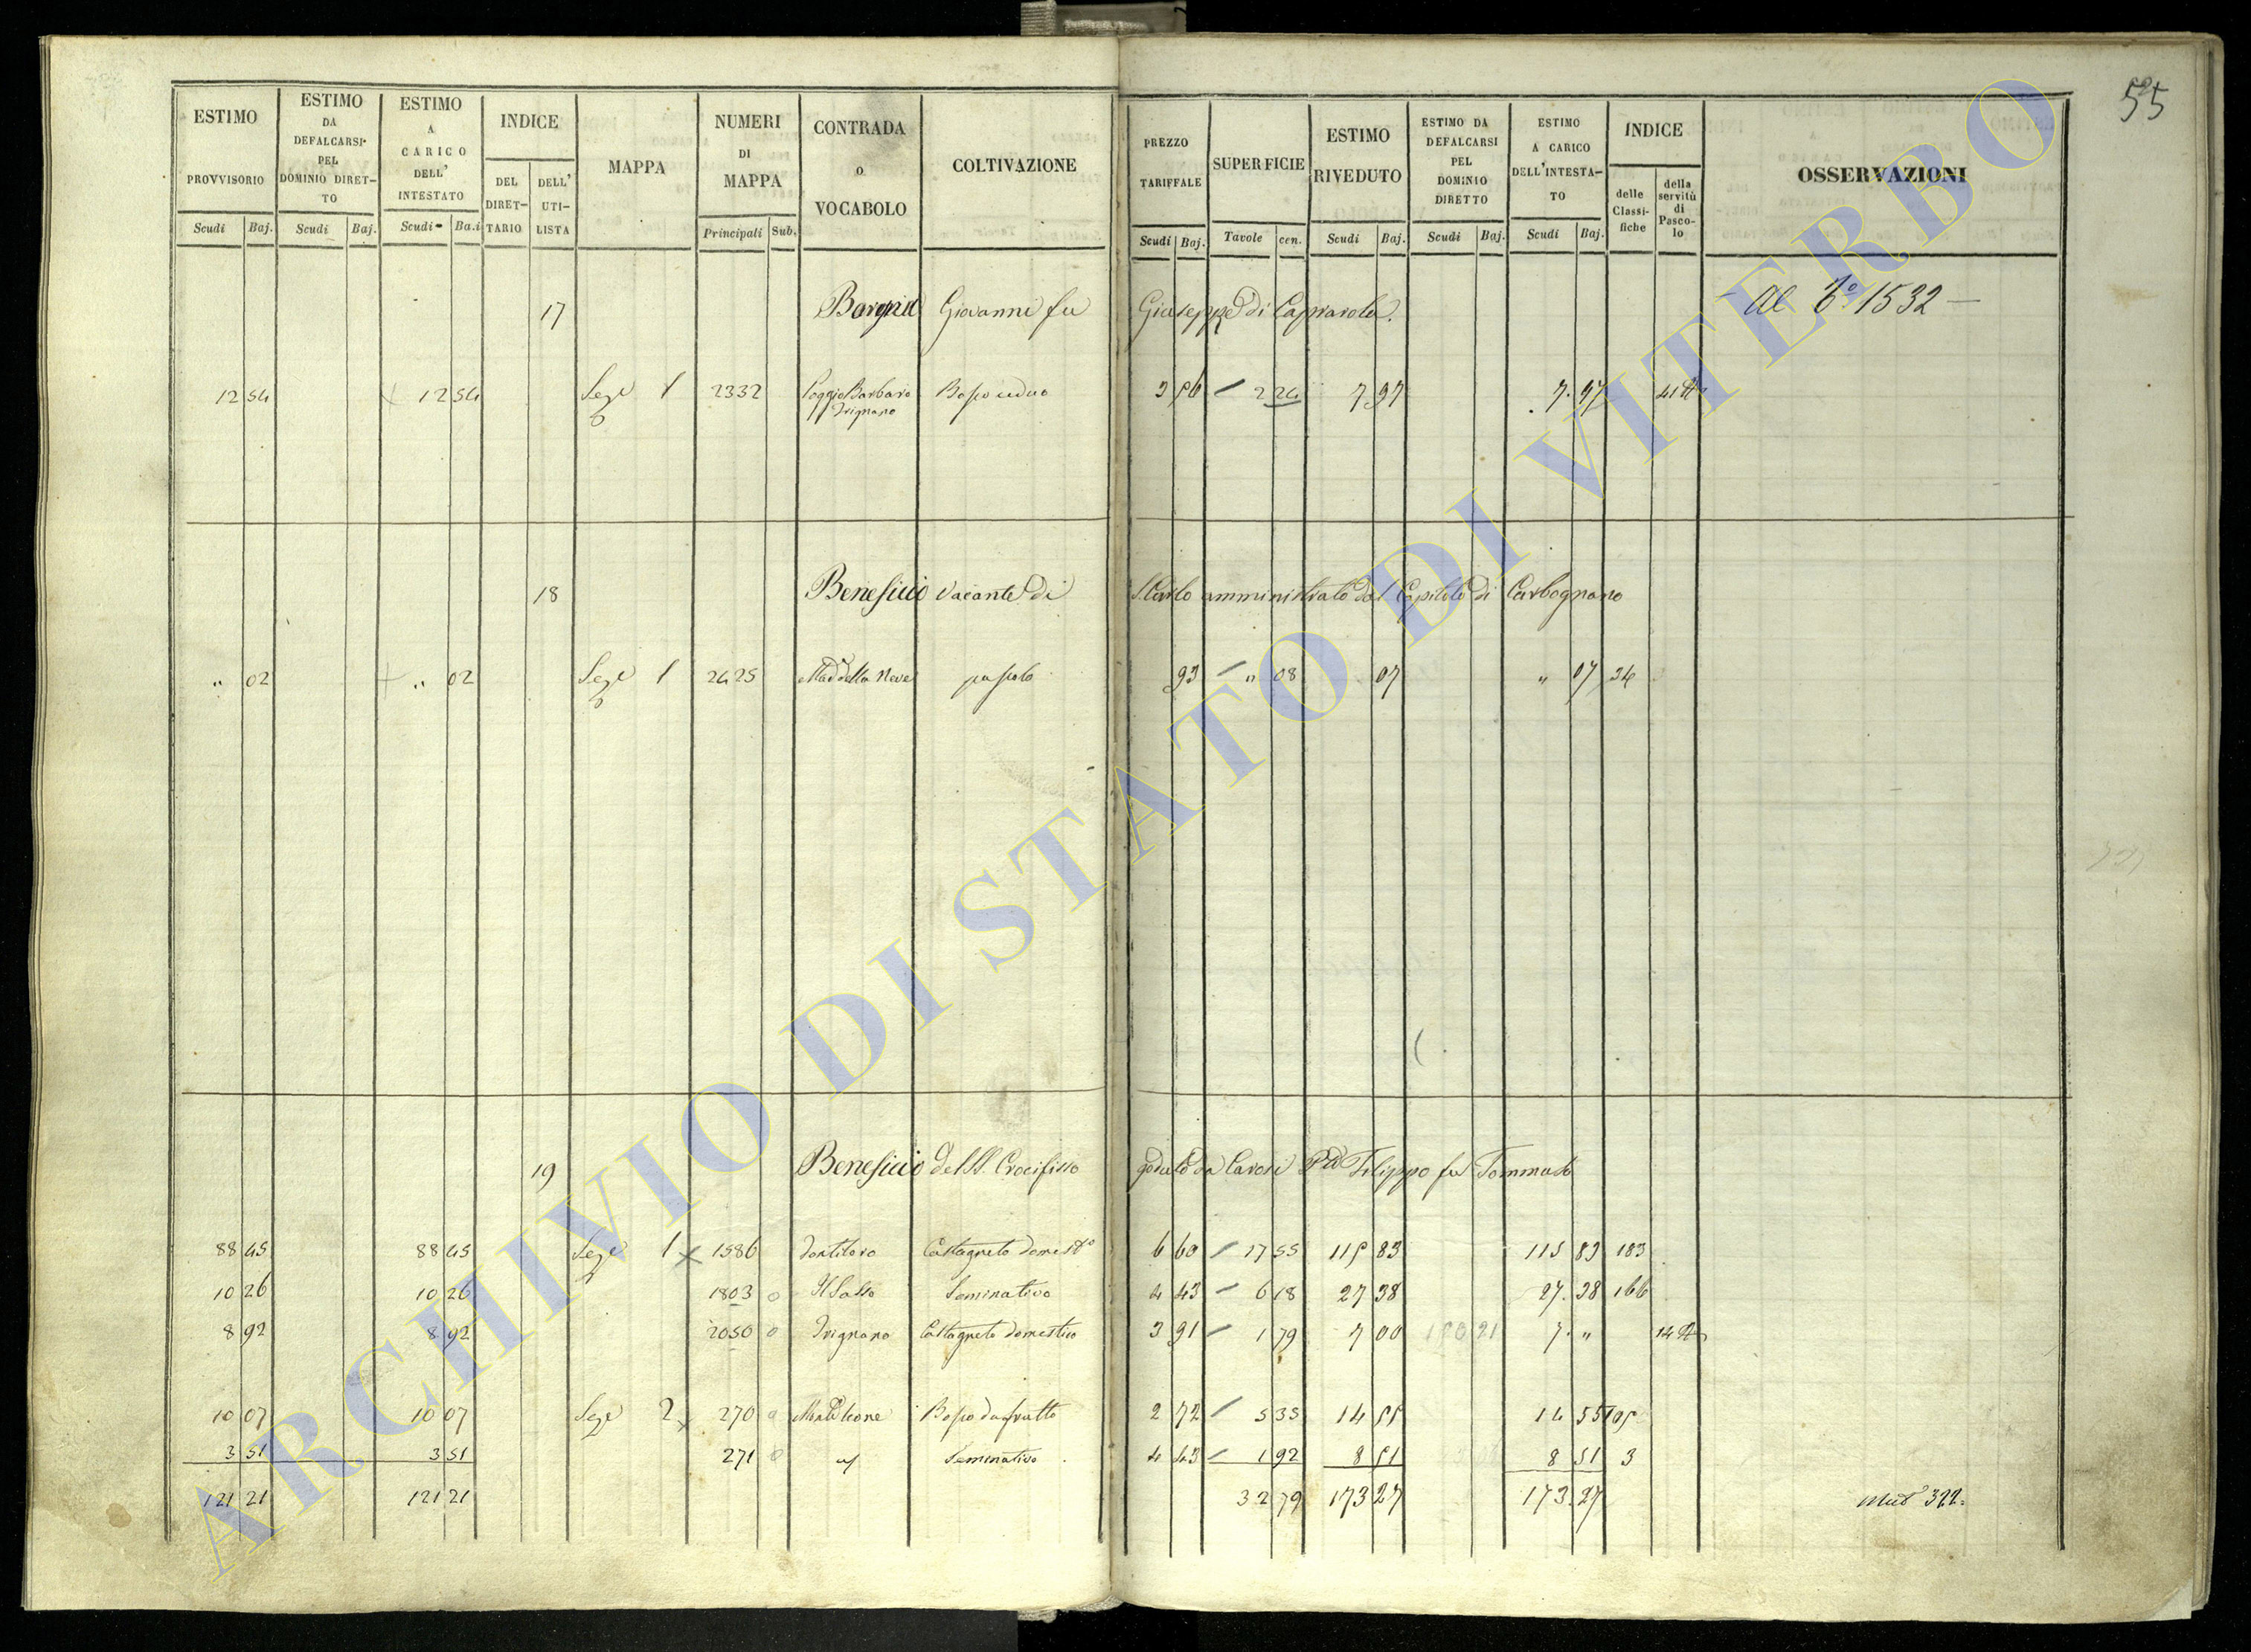 55
ESTIMO PROVVISORIO | ESTIMO DA DEFALCARSI PEL DOMINIO DIRET-TO | ESTIMO A CARICO DELL' INTESTATO | INDICE | MAPPA | NUMERI DI MAPPA | CONTRADA o VOCABOLO | COLTIVAZIONE | PREZZO TARIFFALE | SUPERFICIE | ESTIMO RIVEDUTO | ESTIMO DA DEFALCARSI PEL DOMINIO DIRETTO | ESTIMO A CARICO DELL'INTESTA-TO | INDICE | OSSERVAZIONI
DEL DIRET-TARIO | DELL' UTI-LISTA | delle Classi-fiche | della servitù di Pasco-lo
Scudi | Baj. | Scudi | Baj. | Scudi | Ba.i | Principali | Sub. | Scudi | Baj. | Tavole | cen. | Scudi | Baj. | Scudi | Baj. | Scudi | Baj.
17 Giovanni fu Giuseppe di Caprarola. Al 1532
12 54 12 54 Sez 1 2332 Poggio Barbaro Bosco ceduo 3 56 2 24 7 97 7.97
Trignano
18 Beneficio Vacante di S. Carlo amministrato dal Capitolo di Carbognano
" 02 " 02 Sez 1 2425 Mad della Neve pascolo 93 " 08 07 " 07 34
19 Beneficio del SS. Crocifisso goduto da Carosi Filippo fu Tommaso
88 45 88 45 Sez 1 1586 Castagneto domest° 6 60 17 55 115 83 115 83 183
10 26 10 26 1803 Il Sasso Seminativo 4 43 6 18 27 38 27.38 166
8 92 8 92 2050 Trignano Castagneto domestico 3 91 1 79 7 00 7. "
10 07 10 07 Sez 2 270 Monte Leone Bosco da frutto 2 72 5 35 14 55 14 55 105
3 51 3 51 271 Seminativo 4 43 1 92 8 51 8 51 3
121 21 121 21 32 79 173 27 173.27
ARCHIVIO DI STATO DI VITERBO